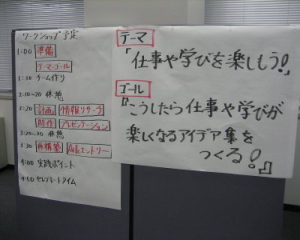 ワークショップ予定
1:00 準備
テーマ・ゴール
1:30 チーム作り
2:10~20 休憩
2:20 計画 情報リサーチ
創作 プレゼンテーション
3:20~30 休憩
3:30 再構築
4:00 実践ポイント
4:10 セレブレートタイム
テーマ
「仕事や学びを楽しもう!」
ゴール
『こうしたら仕事や学びが
楽しくなるアイデア集を
つくる!』